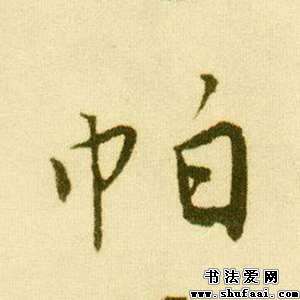 帕
书法爱网
www.shufaai.com